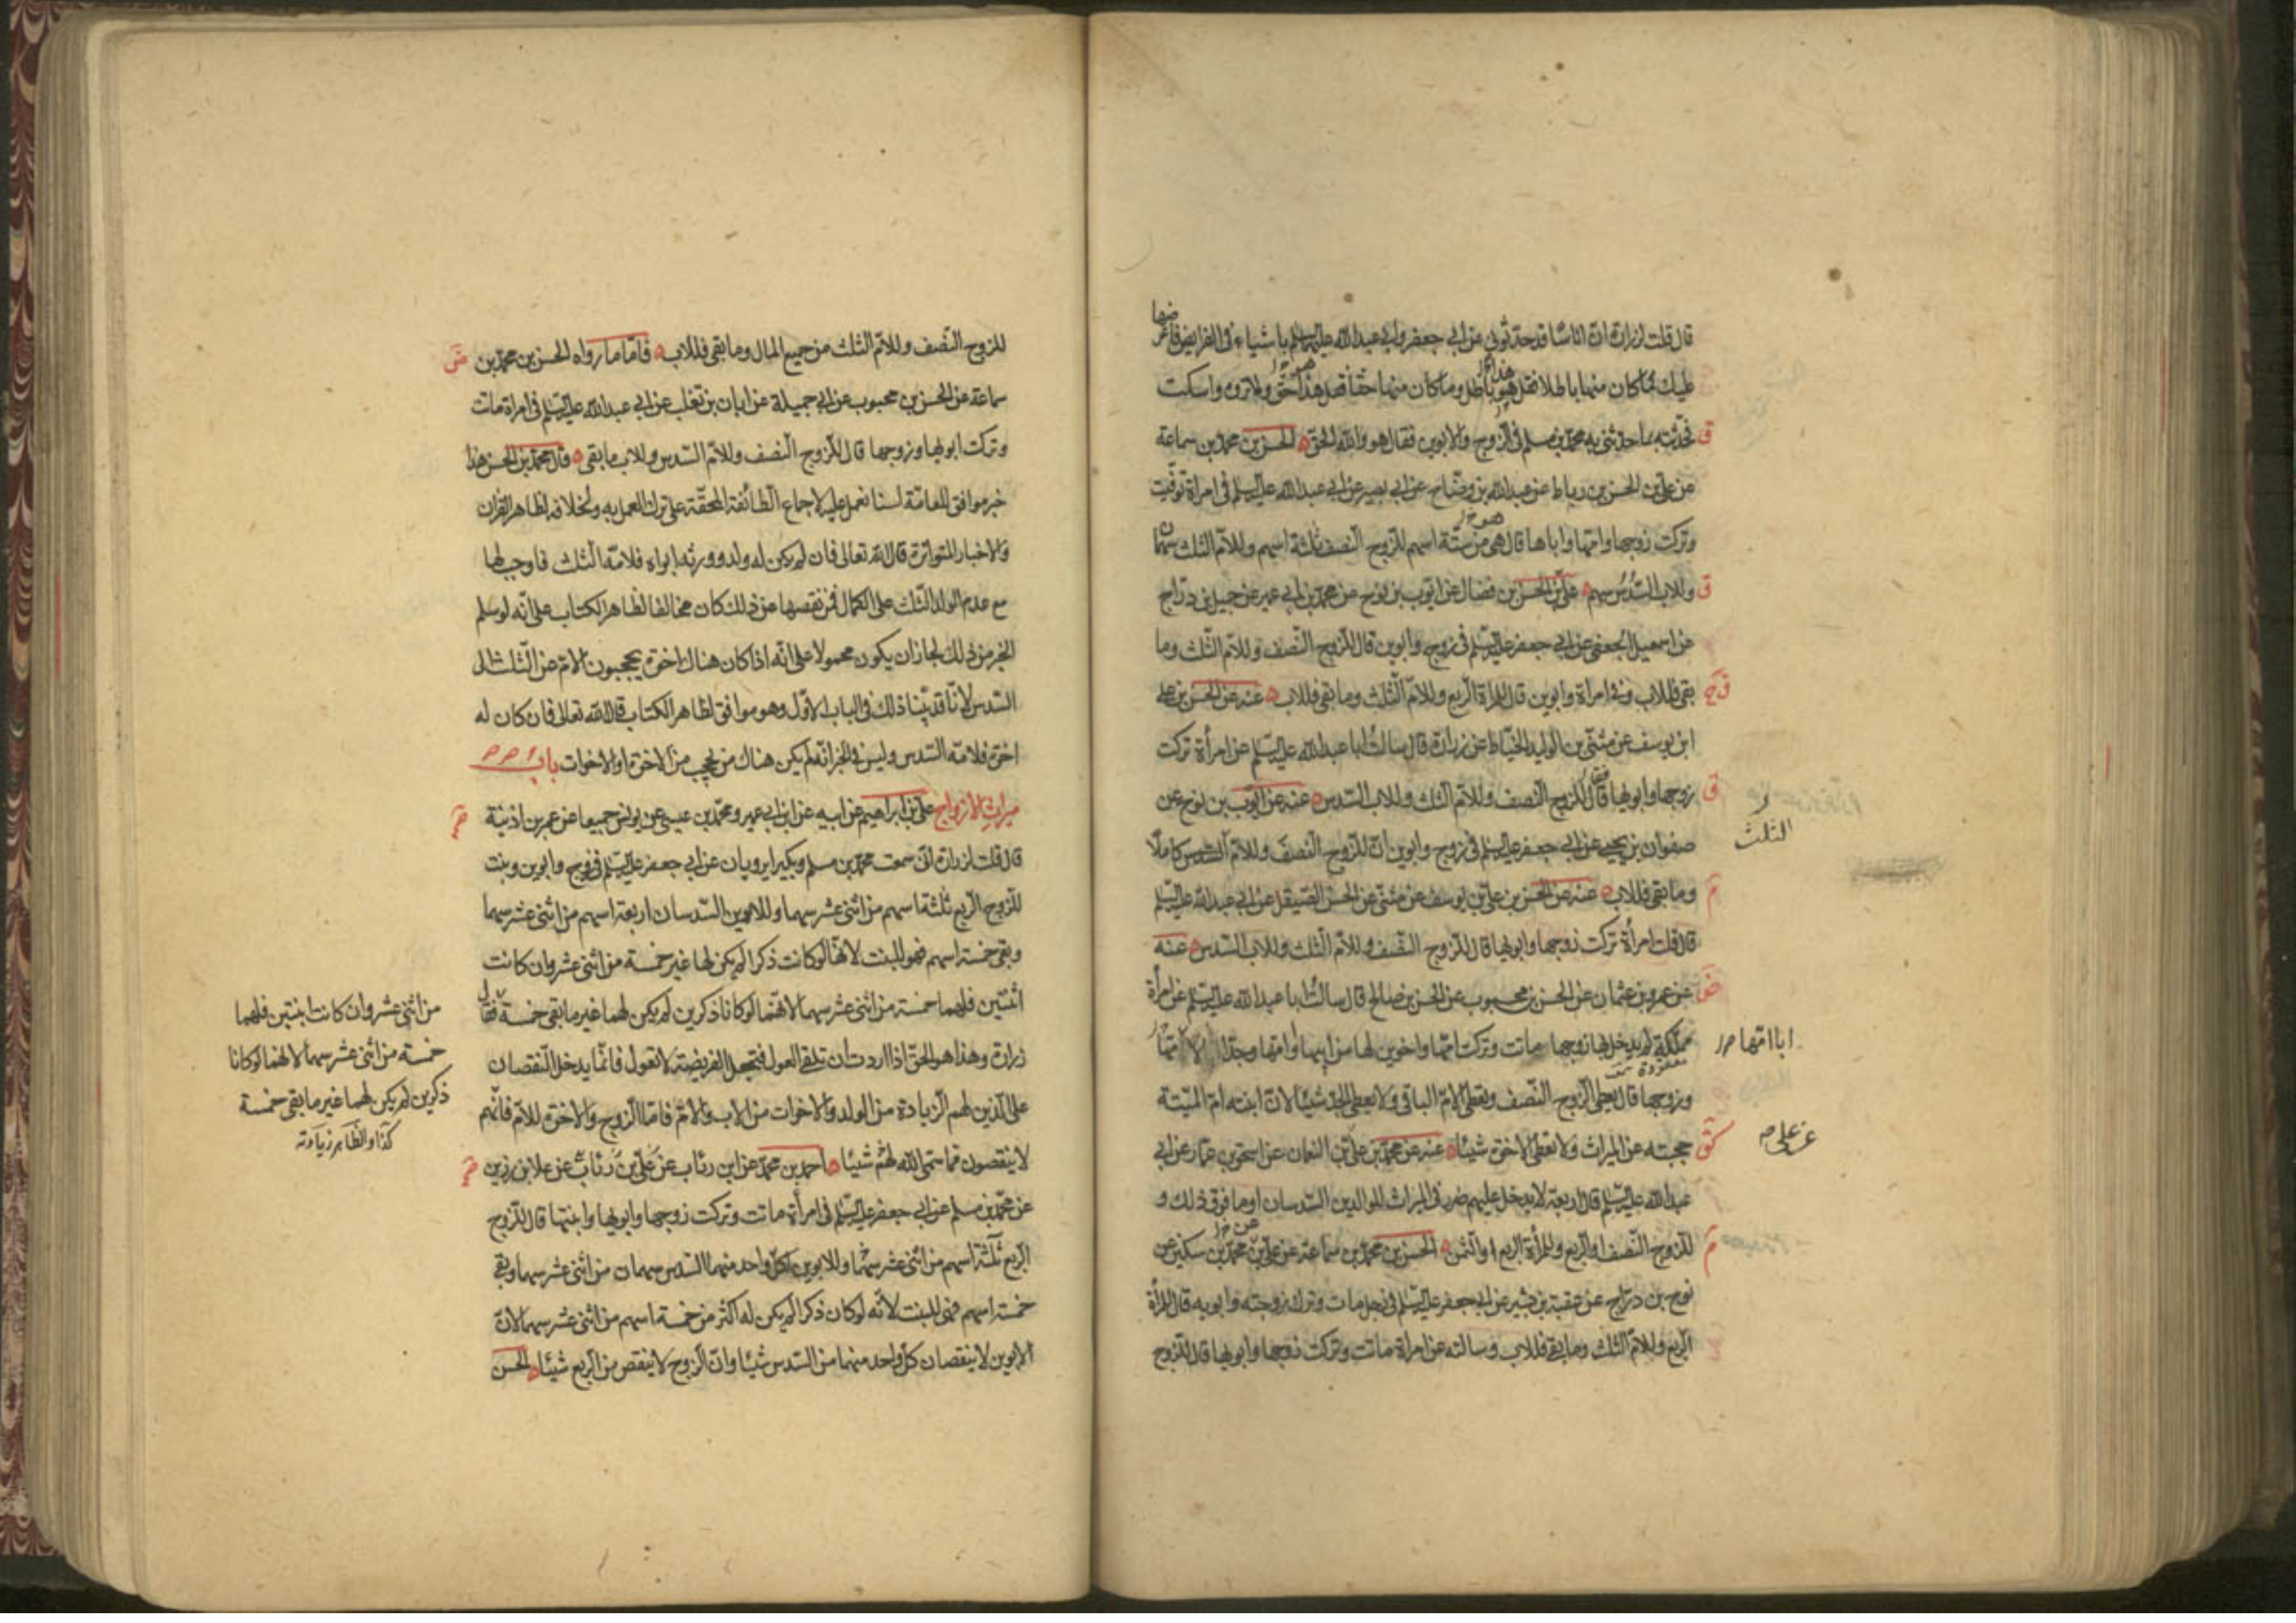 قال قلت لزرارة ان اناسا قد حدثوني عن ابي جعفر وابي عبدالله عليهما السلم باشياء في الفرايض فاعرضها
عليك فما كان منها باطلا فقل هذا باطل وما كان منها حقا فقل هذا حق ولا تروه واسكت
فحدثته بما حدثني به محمد بن مسلم في الزوج والابوين فقال هو والله الحق الحسن بن محمد بن سماعة
عن علي بن الحسن بن رباط عن عبدالله بن وضاح عن ابي بصير عن ابي عبدالله عليه السلم في امراة توفيت
وتركت زوجها وامها واباها قال هي من ستة اسهم للزوج النصف ثلثة اسهم وللام الثلث سهمان
وللاب السدس سهم علي بن الحسن بن فضال عن ايوب بن نوح عن محمد بن ابي عمير عن جميل بن دراج
عن اسمعيل الجعفي عن ابي جعفر عليه السلم في زوج وابوين قال للزوج النصف وللام الثلث وما
بقي فللاب وفي امراة وابوين قال للمراة الربع وللام الثلث وما بقي فللاب عنه عن الحسن بن علي
ابن يوسف عن مثنى بن الوليد الحناط عن زرارة قال سالت ابا عبدالله عليه السلم عن امرأة تركت
زوجها وابويها فقال للزوج النصف وللام الثلث وللاب السدس عنه عن ايوب بن نوح عن
صفوان بن يحيى عن ابي جعفر عليه السلم في زوج وابوين ان للزوج النصف وللام السدس كاملا
الثلث
وما بقي فللاب عنه عن الحسن بن علي بن يوسف عن مثنى عن الحسن الصيقل عن ابي عبدالله عليه السلم
قال قلت امرأة تركت زوجها وابويها قال للزوج النصف وللام الثلث وللاب السدس عنه
عن عمرو بن عثمان عن الحسن بن محبوب عن الحسن بن صالح قال سالت ابا عبدالله عليه السلم عن امرأة
مملكة لم يدخل بها زوجها ماتت وتركت امها واخوين لها من ابيها وامها وجدا امها
ابا امها
وزوجها قال يعطى الزوج النصف وتعطى الام الباقي ولا يعطى الجد شيئا لان ابنته ام الميتة
حجبته عن الميراث ولا تعطى الاخوة شيئا عنه عن محمد بن علي عن النعمان عن اسحق بن عمار عن ابي
عن علي
عبدالله عليه السلم قال اربعة لا يدخل عليهم ضرر في الميراث للوالدين السدسان او ما فوق ذلك و
للزوج النصف او الربع وللمرأة الربع او الثمن الحسن بن محمد بن سماعة عن علي بن محمد بن سكين عن
نوح بن دراج عن عقبة بن بشير عن ابي جعفر عليه السلم في رجل مات وترك زوجته وابويه قال للمرأة
الربع وللام الثلث وما بقي فللاب وسالته عن امراة ماتت وتركت زوجها وابويها قال للزوج
للزوج النصف وللام الثلث من جميع المال وما بقي فللاب فاما ما رواه الحسن بن محمد بن
سماعة عن الحسن بن محبوب عن ابي جميلة عن ابان بن تغلب عن ابي عبدالله عليه السلم في امراة ماتت
وتركت ابويها وزوجها قال للزوج النصف وللام السدس وللاب ما بقي وقال محمد بن الحسن هذا
خبر موافق للعامة لسنا نعمل عليه لاجماع الطائفة المحقة على ترك العمل به ولخلافه لظاهر القران
والاخبار المتواترة قال الله تعالى فان لم يكن له ولد وورثه ابواه فلامه الثلث فاوجب لها
مع عدم الولد الثلث على الكمال فمن نقصها عن ذلك كان مخالفا لظاهر الكتاب على انه لو سلم
الخبر من ذلك لجاز ان يكون محمولا على انه اذا كان هناك اخوة يحجبون الام عن الثلث الى
السدس لانا قد بينا ذلك في الباب الاول وهو موافق لظاهر الكتاب قال الله تعالى فان كان له
اخوة فلامه السدس وليس في الخبر انه لم يكن هناك من يحجب من الاخوة او الاخوات باب
ميراث الازواج علي بن ابراهيم عن ابيه عن ابن ابي عمير ومحمد بن عيسى عن يونس جميعا عن عمر بن اذينة
قال قلت لزرارة اني سمعت محمد بن مسلم وبكيرا يرويان عن ابي جعفر عليه السلم في زوج وابوين وبنت
للزوج الربع ثلثة اسهم من اثنى عشر سهما وللابوين السدسان اربعة اسهم من اثنى عشر سهما
وبقي خمسة اسهم فهو للبنت لانها لو كانت ذكرا لم يكن لها غير خمسة من اثنى عشر وان كانت
اثنتين فلهما خمسة من اثنى عشر سهما لانهما لو كانا ذكرين لم يكن لهما غير ما بقي خمسة فقال
زرارة وهذا هو الحق اذا اردت ان تلقي العول فتجعل الفريضة لا تعول فانما يدخل النقصان
على الذين لهم الزيادة من الولد والاخوات من الاب والام فاما الزوج والاخوة للام فانهم
لا ينقصون مما سمى الله لهم شيئا احمد بن محمد عن ابن رئاب عن علي بن رئاب عن علا بن رزين
عن محمد بن مسلم عن ابي جعفر عليه السلم في امرأة ماتت وتركت زوجها وابويها وابنتها قال للزوج
الربع ثلثة اسهم من اثنى عشر سهما وللابوين لكل واحد منهما السدس سهمان من اثنى عشر سهما وبقي
خمسة اسهم فهي للبنت لانه لو كان ذكرا لم يكن له اكثر من خمسة اسهم من اثنى عشر سهما لان
الابوين لا ينقصان كل واحد منهما من السدس شيئا وان الزوج لا ينقص من الربع شيئا الحسن
من اثنى عشر وان كانت ابنتين فلهما
خمسة من اثنى عشر سهما لانهما لو كانا
ذكرين لم يكن لهما غير ما بقي خمسة
كذا والظاهر زيادته